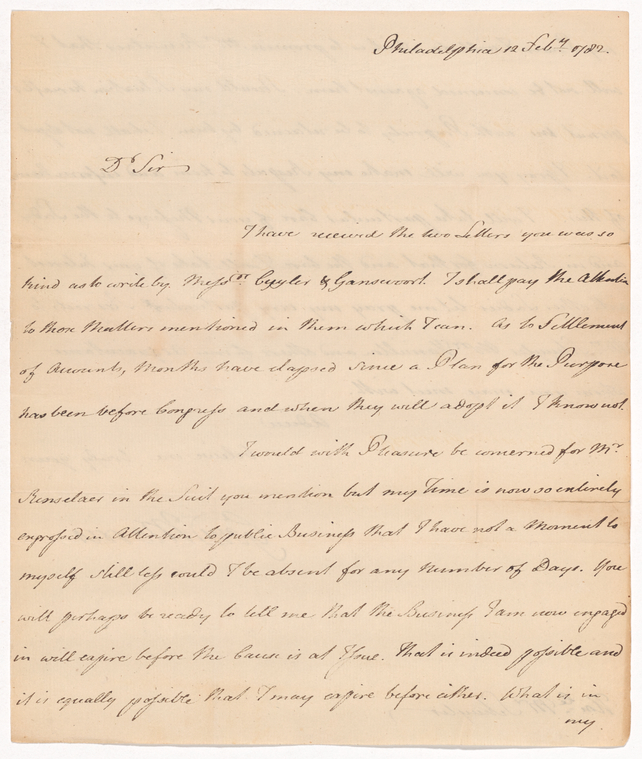 Philadelphia 12 Feby. 1782.
Dr Sir
I have received the two Letters you was so
kind as to write by Messrs Cuyler & Gansevoort. I shall pay the Attention
to those Matters mentioned in them which I can. As to Settlement
of Accounts, Months have elapsed since a Plan for the Purpose
has been before Congress and when they will adopt it I know not.
I would with Pleasure be concerned for Mr.
Renselaer in the Suit you mention but my Time is now so entirely
engrossed in Attention to public Business that I have not a Moment to
myself still less could I be absent for any Number of Days. You
will perhaps be ready to tell me that the Business I am now engaged
in will expire before the Cause is at Issue. That is indeed possible and
it is equally possible that I may expire before either. What is in
my